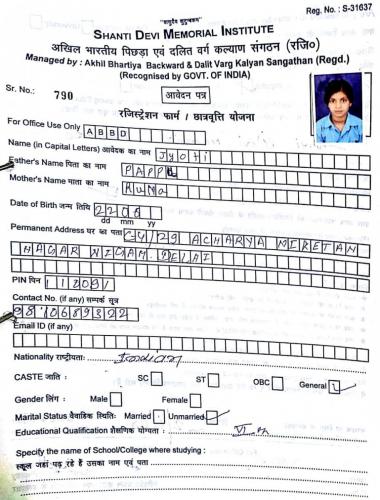 Reg. No. : S-31637
"वसुदैव कुटुम्बकम्"
SHANTI DEVI MEMORIAL INSTITUTE
अखिल भारतीय पिछड़ा एवं दलित वर्ग कल्याण संगठन (रजि०)
Managed by : Akhil Bhartiya Backward & Dalit Varg Kalyan Sangathan (Regd.)
(Recognised by GOVT. OF INDIA)
Sr. No.: 790
आवेदन पत्र
रजिस्ट्रेशन फार्म / छात्रवृत्ति योजना
For Office Use Only ABBD
Name (in Capital Letters) आवेदक का नाम Jyoti
Father's Name पिता का नाम PAPPU
Mother's Name माता का नाम RUMA
Date of Birth जन्म तिथि 2206
dd mm yy
Permanent Address घर का पता C-4/29 ACHARYA NIKETAN
NAGAR NIGAM. DELAI
PIN पिन 110091
Contact No. (if any) सम्पर्क सूत्र
9810689322
Email ID (if any)
Nationality राष्ट्रीयता: Indian
CASTE जाति : SC ST OBC General
Gender लिंग : Male Female
Marital Status वैवाहिक स्थिति: Married Unmarried
Educational Qualification शैक्षणिक योग्यता : VI th
Specify the name of School/College where studying :
स्कूल जहां पढ़ रहे हैं उसका नाम एवं पता